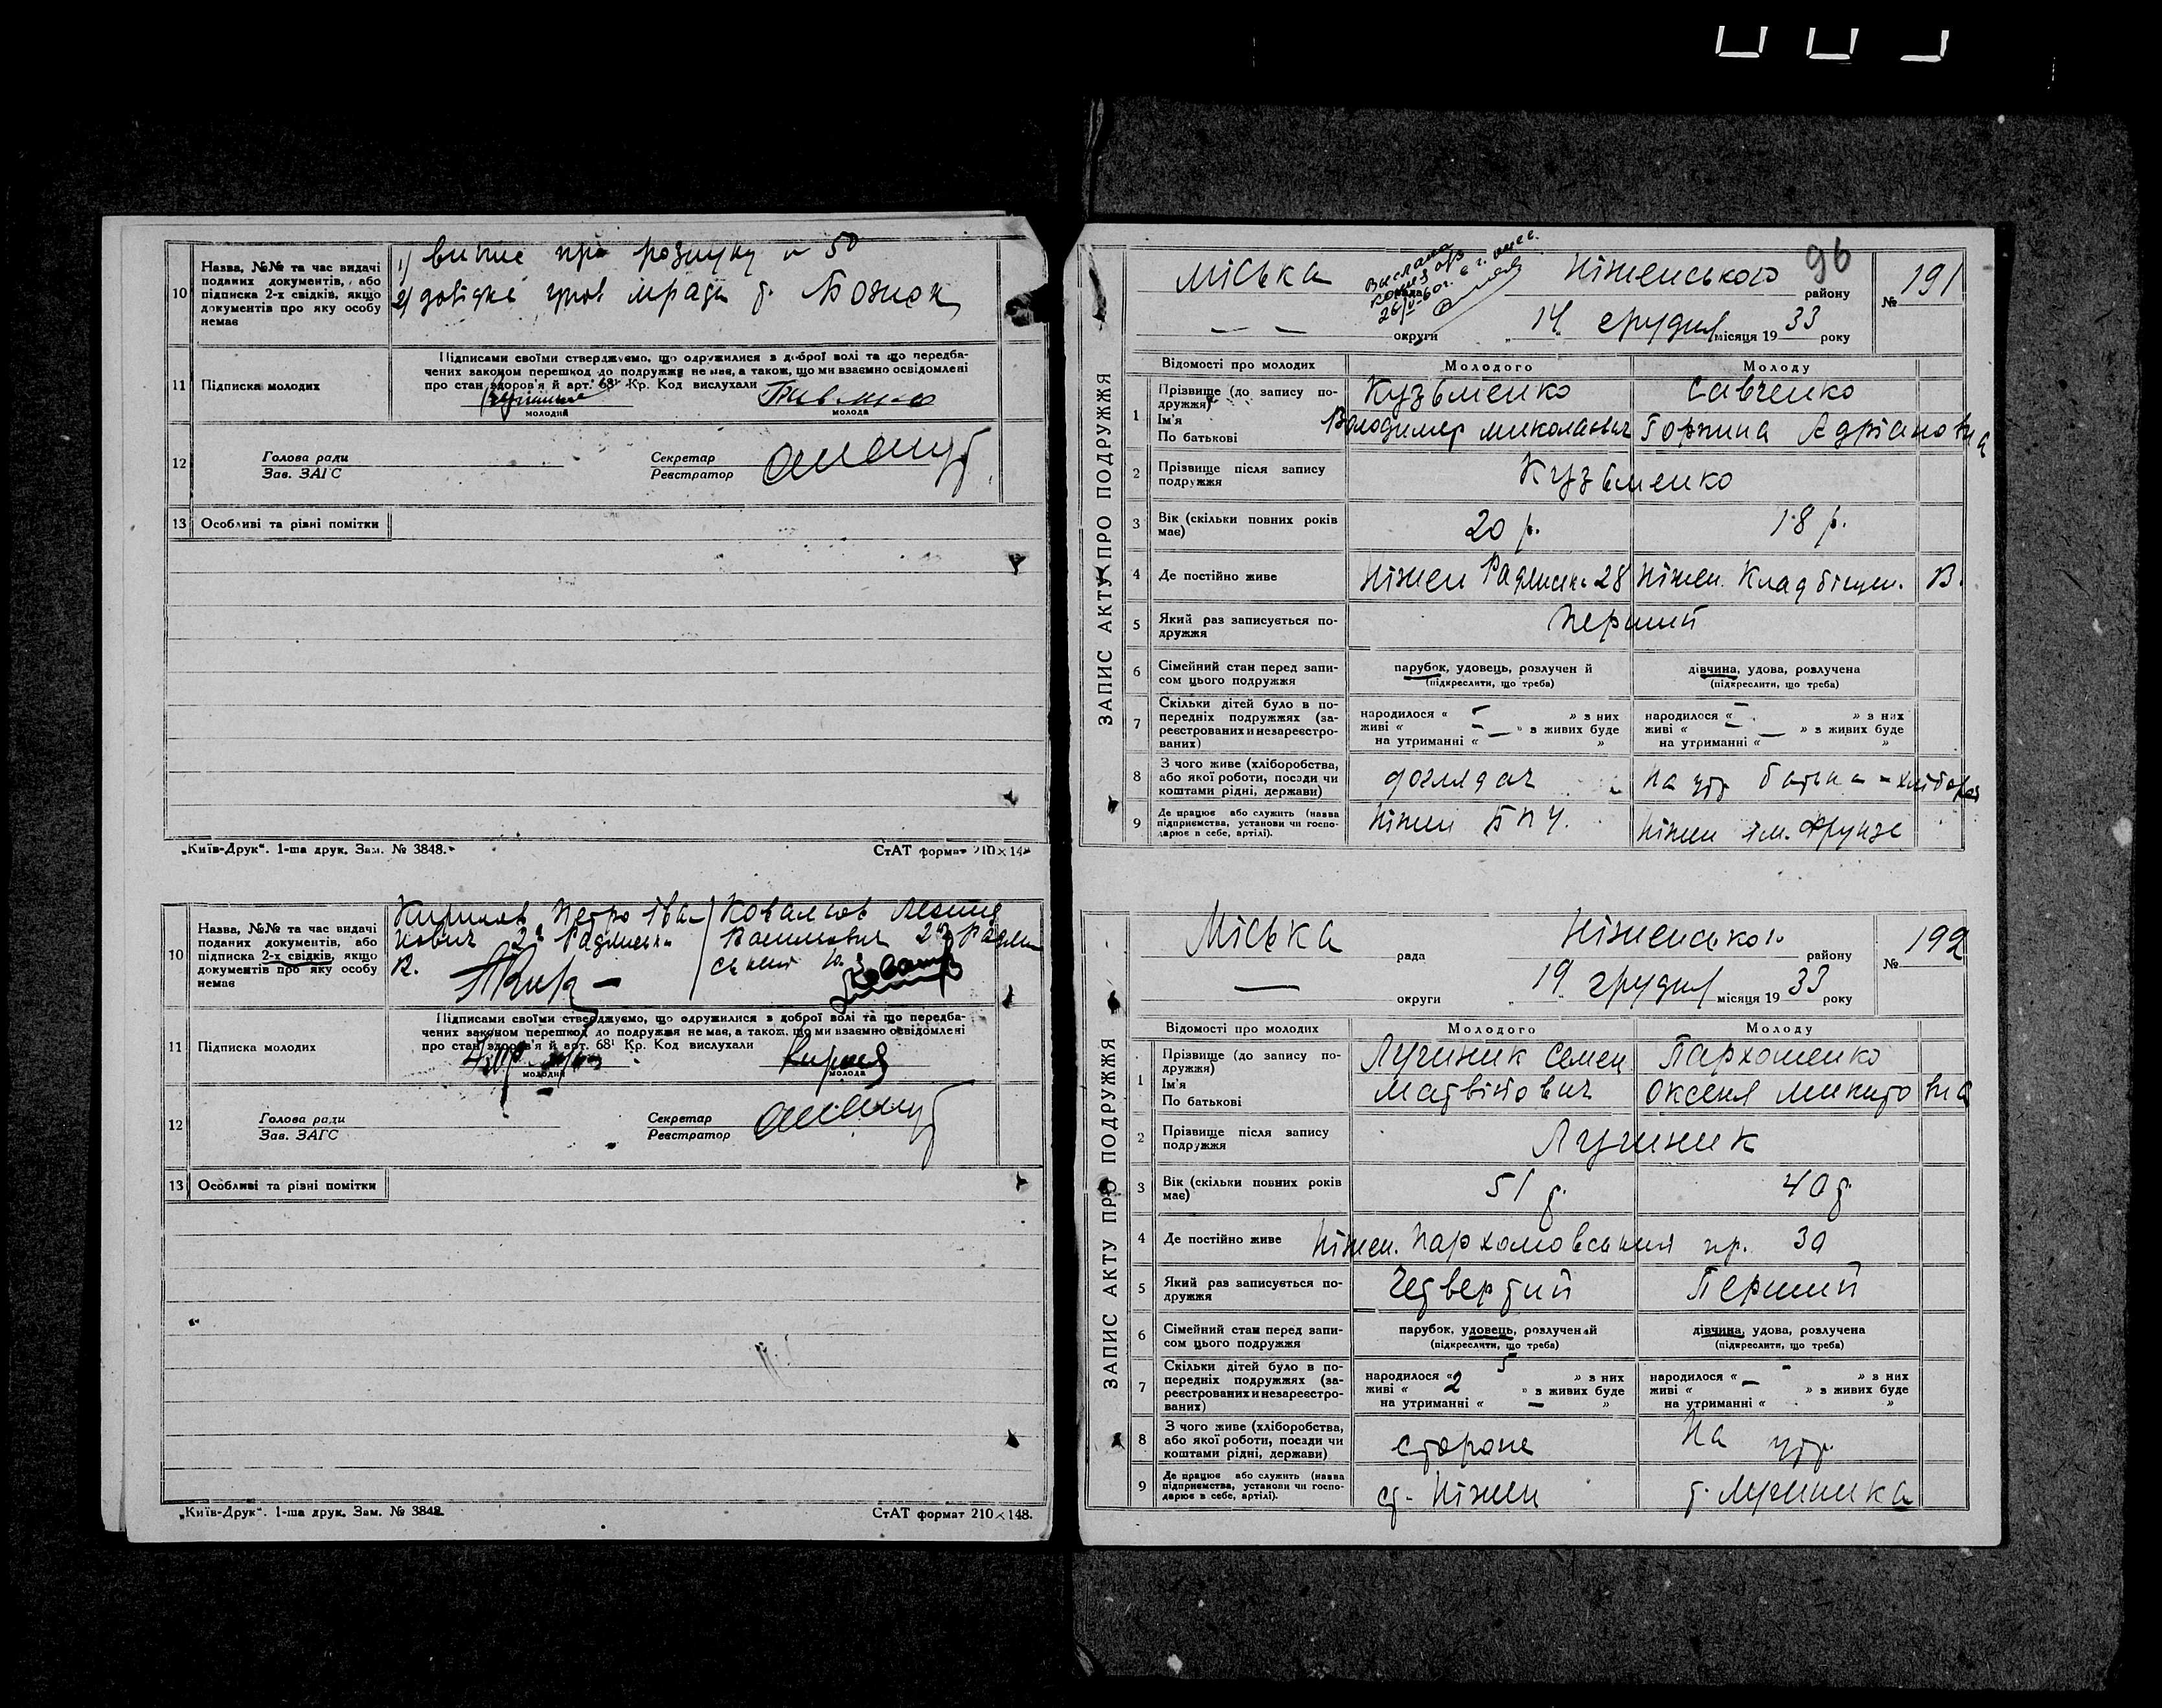 10
Назва, №№ та час видачі
поданих документів, або
підписка 2-х свідків, якщо
документів про яку особу
немає
1) випис про розлуку № 50
2) довідка
11
Підписка молодих
Підписами своїми стверджуємо, що одружилися з доброї волі та що передба-
чених законом перешкод до подружжя не має, а також, що ми взаємно освідомлені
про стан здоров'я й арт. 68¹ Кр. Код вислухали
молодий
молода
12
Голова ради
Зав. ЗАГС
Секретар
Реєстратор
13
Особливі та різні помітки
„Київ-Друк“. 1-ша друк. Зам. № 3848.
СтАТ формат 210×148
10
Назва, №№ та час видачі
поданих документів, або
підписка 2-х свідків, якщо
документів про яку особу
немає
Петро Іва-
нович
11
Підписка молодих
Підписами своїми стверджуємо, що одружилися з доброї волі та що передба-
чених законом перешкод до подружжя не має, а також, що ми взаємно освідомлені
про стан здоров'я й арт. 68¹ Кр. Код вислухали
молодий
молода
12
Голова ради
Зав. ЗАГС
Секретар
Реєстратор
13
Особливі та різні помітки
„Київ-Друк“. 1-ша друк. Зам. № 3848.
СтАТ формат 210×148.
96
ЗАПИС АКТУ ПРО ПОДРУЖЖЯ
Міська рада Ніженського району № 191
— — округи „14 грудня місяця 1933 року
Відомості про молодих
Молодого
Молоду
1
Прізвище (до запису по-
дружжя)
Ім'я
По батькові
Кузьменко
Володимер Миколаович
Савченко
Горпина Адріановна
2
Прізвище після запису
подружжя
Кузьменко
3
Вік (скільки повних років
має)
20 р.
18 р.
4
Де постійно живе
Ніжен 28
Ніжен. Кладбіщен. В.
5
Який раз записується по-
дружжя
Перший
6
Сімейний стан перед запи-
сом цього подружжя
парубок, удовець, розлучен й
(підкреслити, що треба)
дівчина, удова, розлучена
(підкреслити, що треба)
7
Скільки дітей було в по-
передніх подружжях (за-
реєстрованих и незареєстро-
ваних)
народилося « — » з них
живі « — » з живих буде
на утриманні « — »
народилося « — » з них
живі « — » з живих буде
на утриманні « — »
8
З чого живе (хліборобства,
або якої роботи, посади чи
коштами рідні, держави)
доглядач
на утр батька - хлібороб
9
Де працює або служить (назва
підприємства, установи чи госпо-
дарює в себе, артілі).
Ніжен БПЧ.
Ніжен ім. Фрунзе
ЗАПИС АКТУ ПРО ПОДРУЖЖЯ
Міська рада Ніженського району № 192
— округи „19 грудня місяця 1933 року
Відомості про молодих
Молодого
Молоду
1
Прізвище (до запису по-
дружжя)
Ім'я
По батькові
Лучиник Семен
Матвійович
Пархоменко
Оксеня Микитовна
2
Прізвище після запису
подружжя
Лучиник
3
Вік (скільки повних років
має)
51 р.
40 р.
4
Де постійно живе
Ніжен. Пархомовський пр.
5
Який раз записується по-
дружжя
Четвертий
Перший
6
Сімейний стан перед запи-
сом цього подружжя
парубок, удовець, розлучений
(підкреслити, що треба)
дівчина, удова, розлучена
(підкреслити, що треба)
7
Скільки дітей було в по-
передніх подружжях (за-
реєстрованих и незареєстро-
ваних)
народилося « 5 » з них
живі « 2 » з живих буде
на утриманні « — »
народилося « - » з них
живі « — » з живих буде
на утриманні « »
8
З чого живе (хліборобства,
або якої роботи, посади чи
коштами рідні, держави)
стороже
На утр.
9
Де працює або служить (назва
підприємства, установи чи госпо-
дарює в себе, артілі).
ст. Ніжен
г. Лучиника